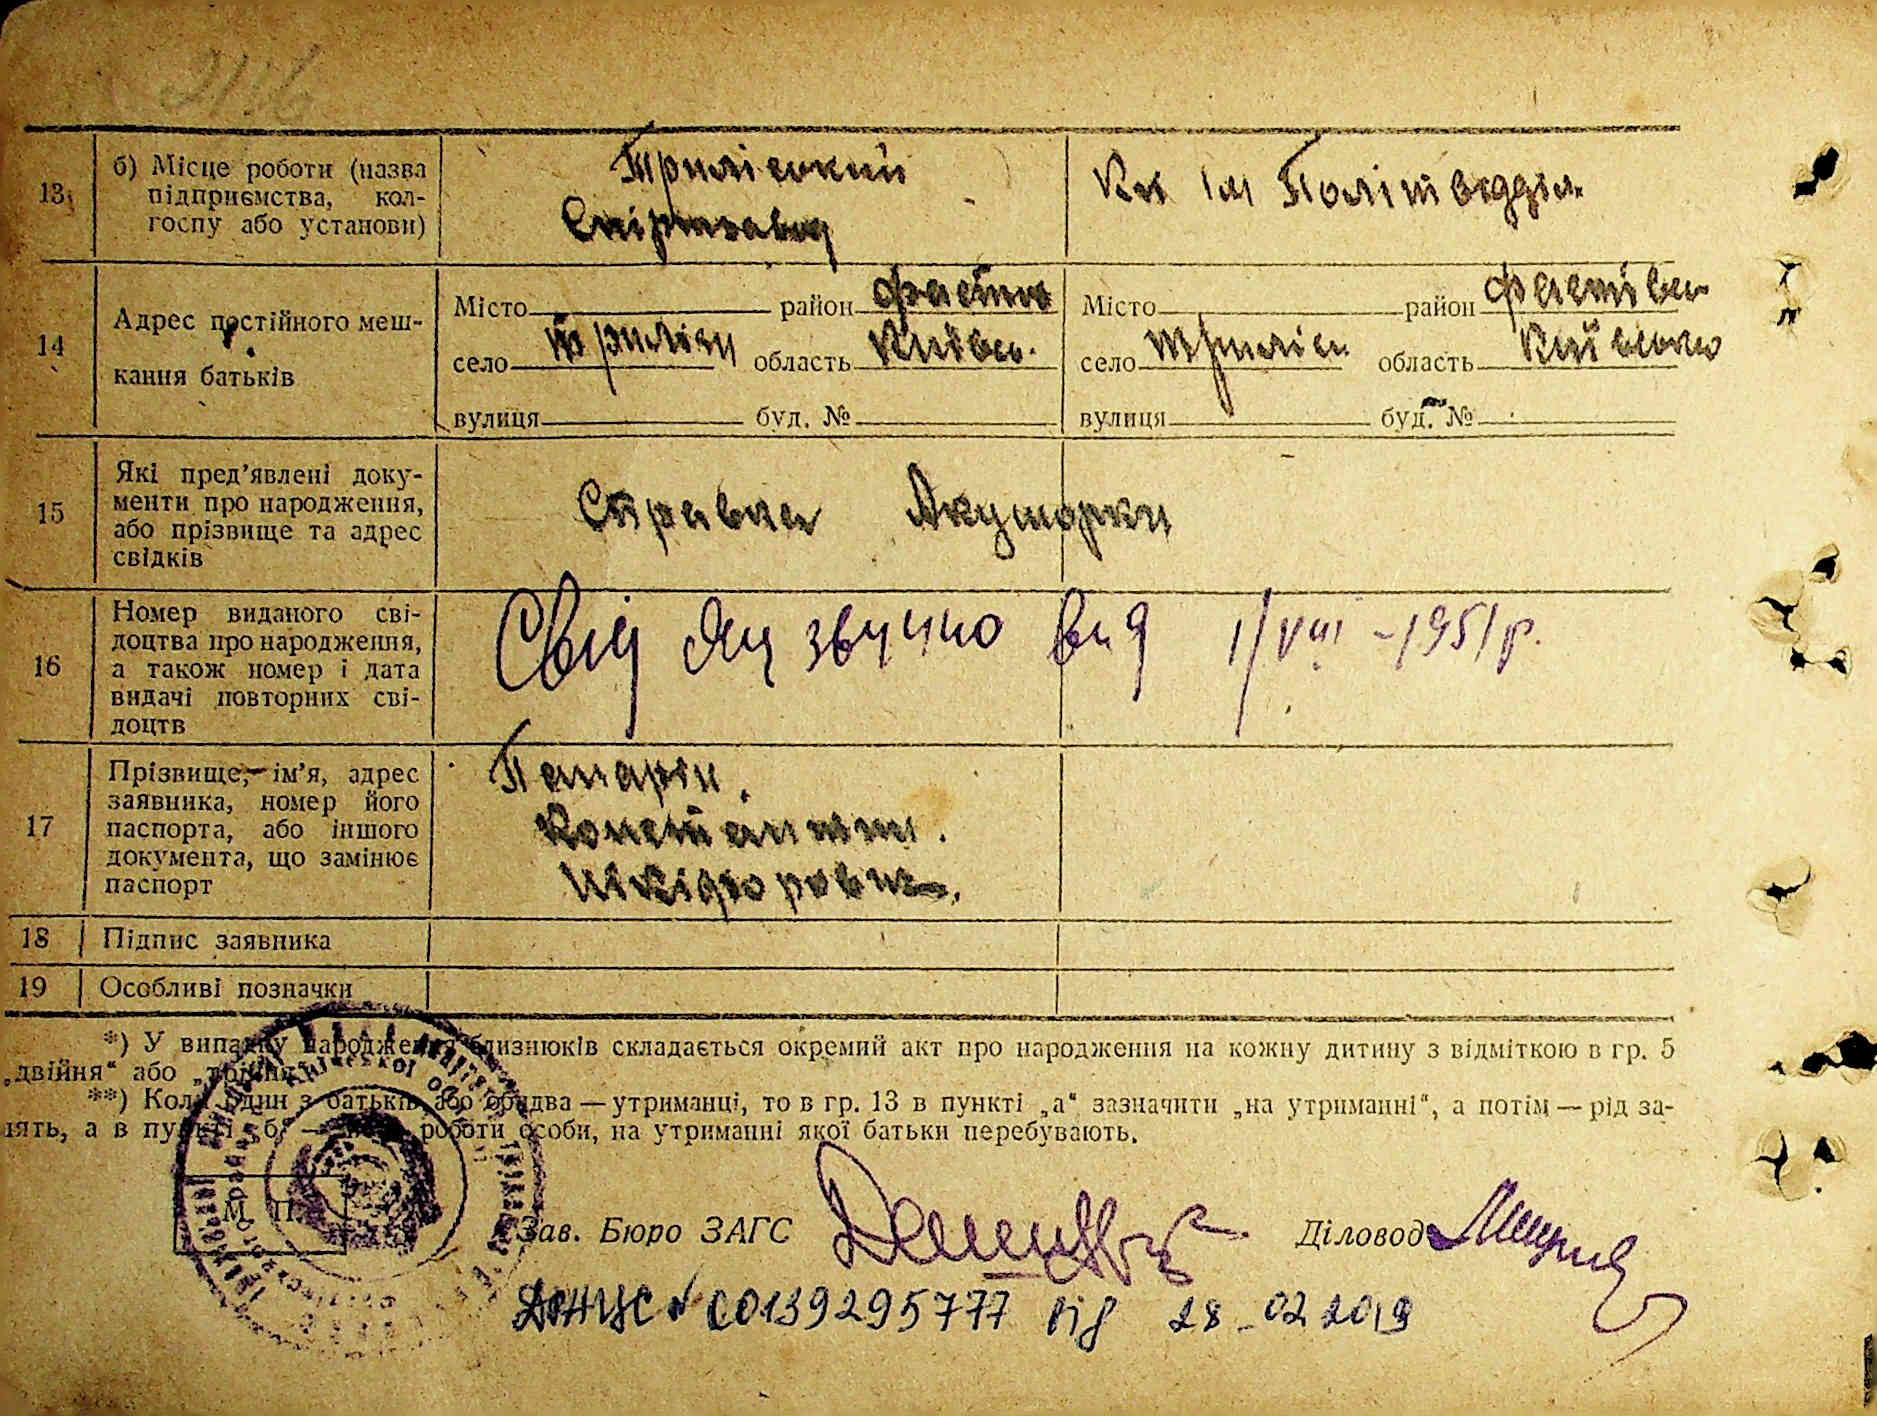 13 б) Місце роботи (назва підприємства, колгоспу або установи) Трилісський Спіртзавод Кк Ім Політвідділ
14 Адрес постійного мешкання батьків
Місто район Фастів Місто район Фастівсь
село Триліси область Київсь. село Триліси область Київсько
вулиця буд. № вулиця буд. №
15 Які пред’явлені документи про народження, або прізвище та адрес свідків Справка Акушорки
16 Номер виданого свідоцтва про народження, а також номер і дата видачі повторних свідоцтв Свід вид 1/VIII - 1951 р.
17 Прізвище, ім’я, адрес заявника, номер його паспорта, або іншого документа, що замінює паспорт
Константин.
Нікіфоровіч.
18 Підпис заявника
19 Особливі позначки
*) У випадку народження близнюків складається окремий акт про народження на кожну дитину з відміткою в гр. 5
„двійня“ або „трійня“.
**) Коли один з батьків або обидва — утриманці, то в гр. 13 в пункті „а“ зазначити „на утриманні“, а потім — рід за-
нять, а в пункті „б“ — місце роботи особи, на утриманні якої батьки перебувають.
М. П.
Зав. Бюро ЗАГС Діловод
№ 00139295777 від 28-02 2019